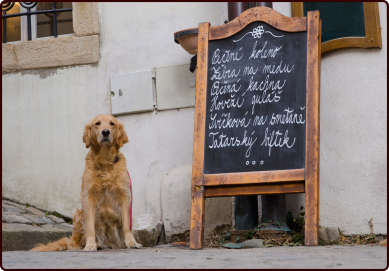 Pečené koleno
Žebra na medu
Pečená kachna
Hovězí guláš
Svíčková na smetaně
Tatarský biftek